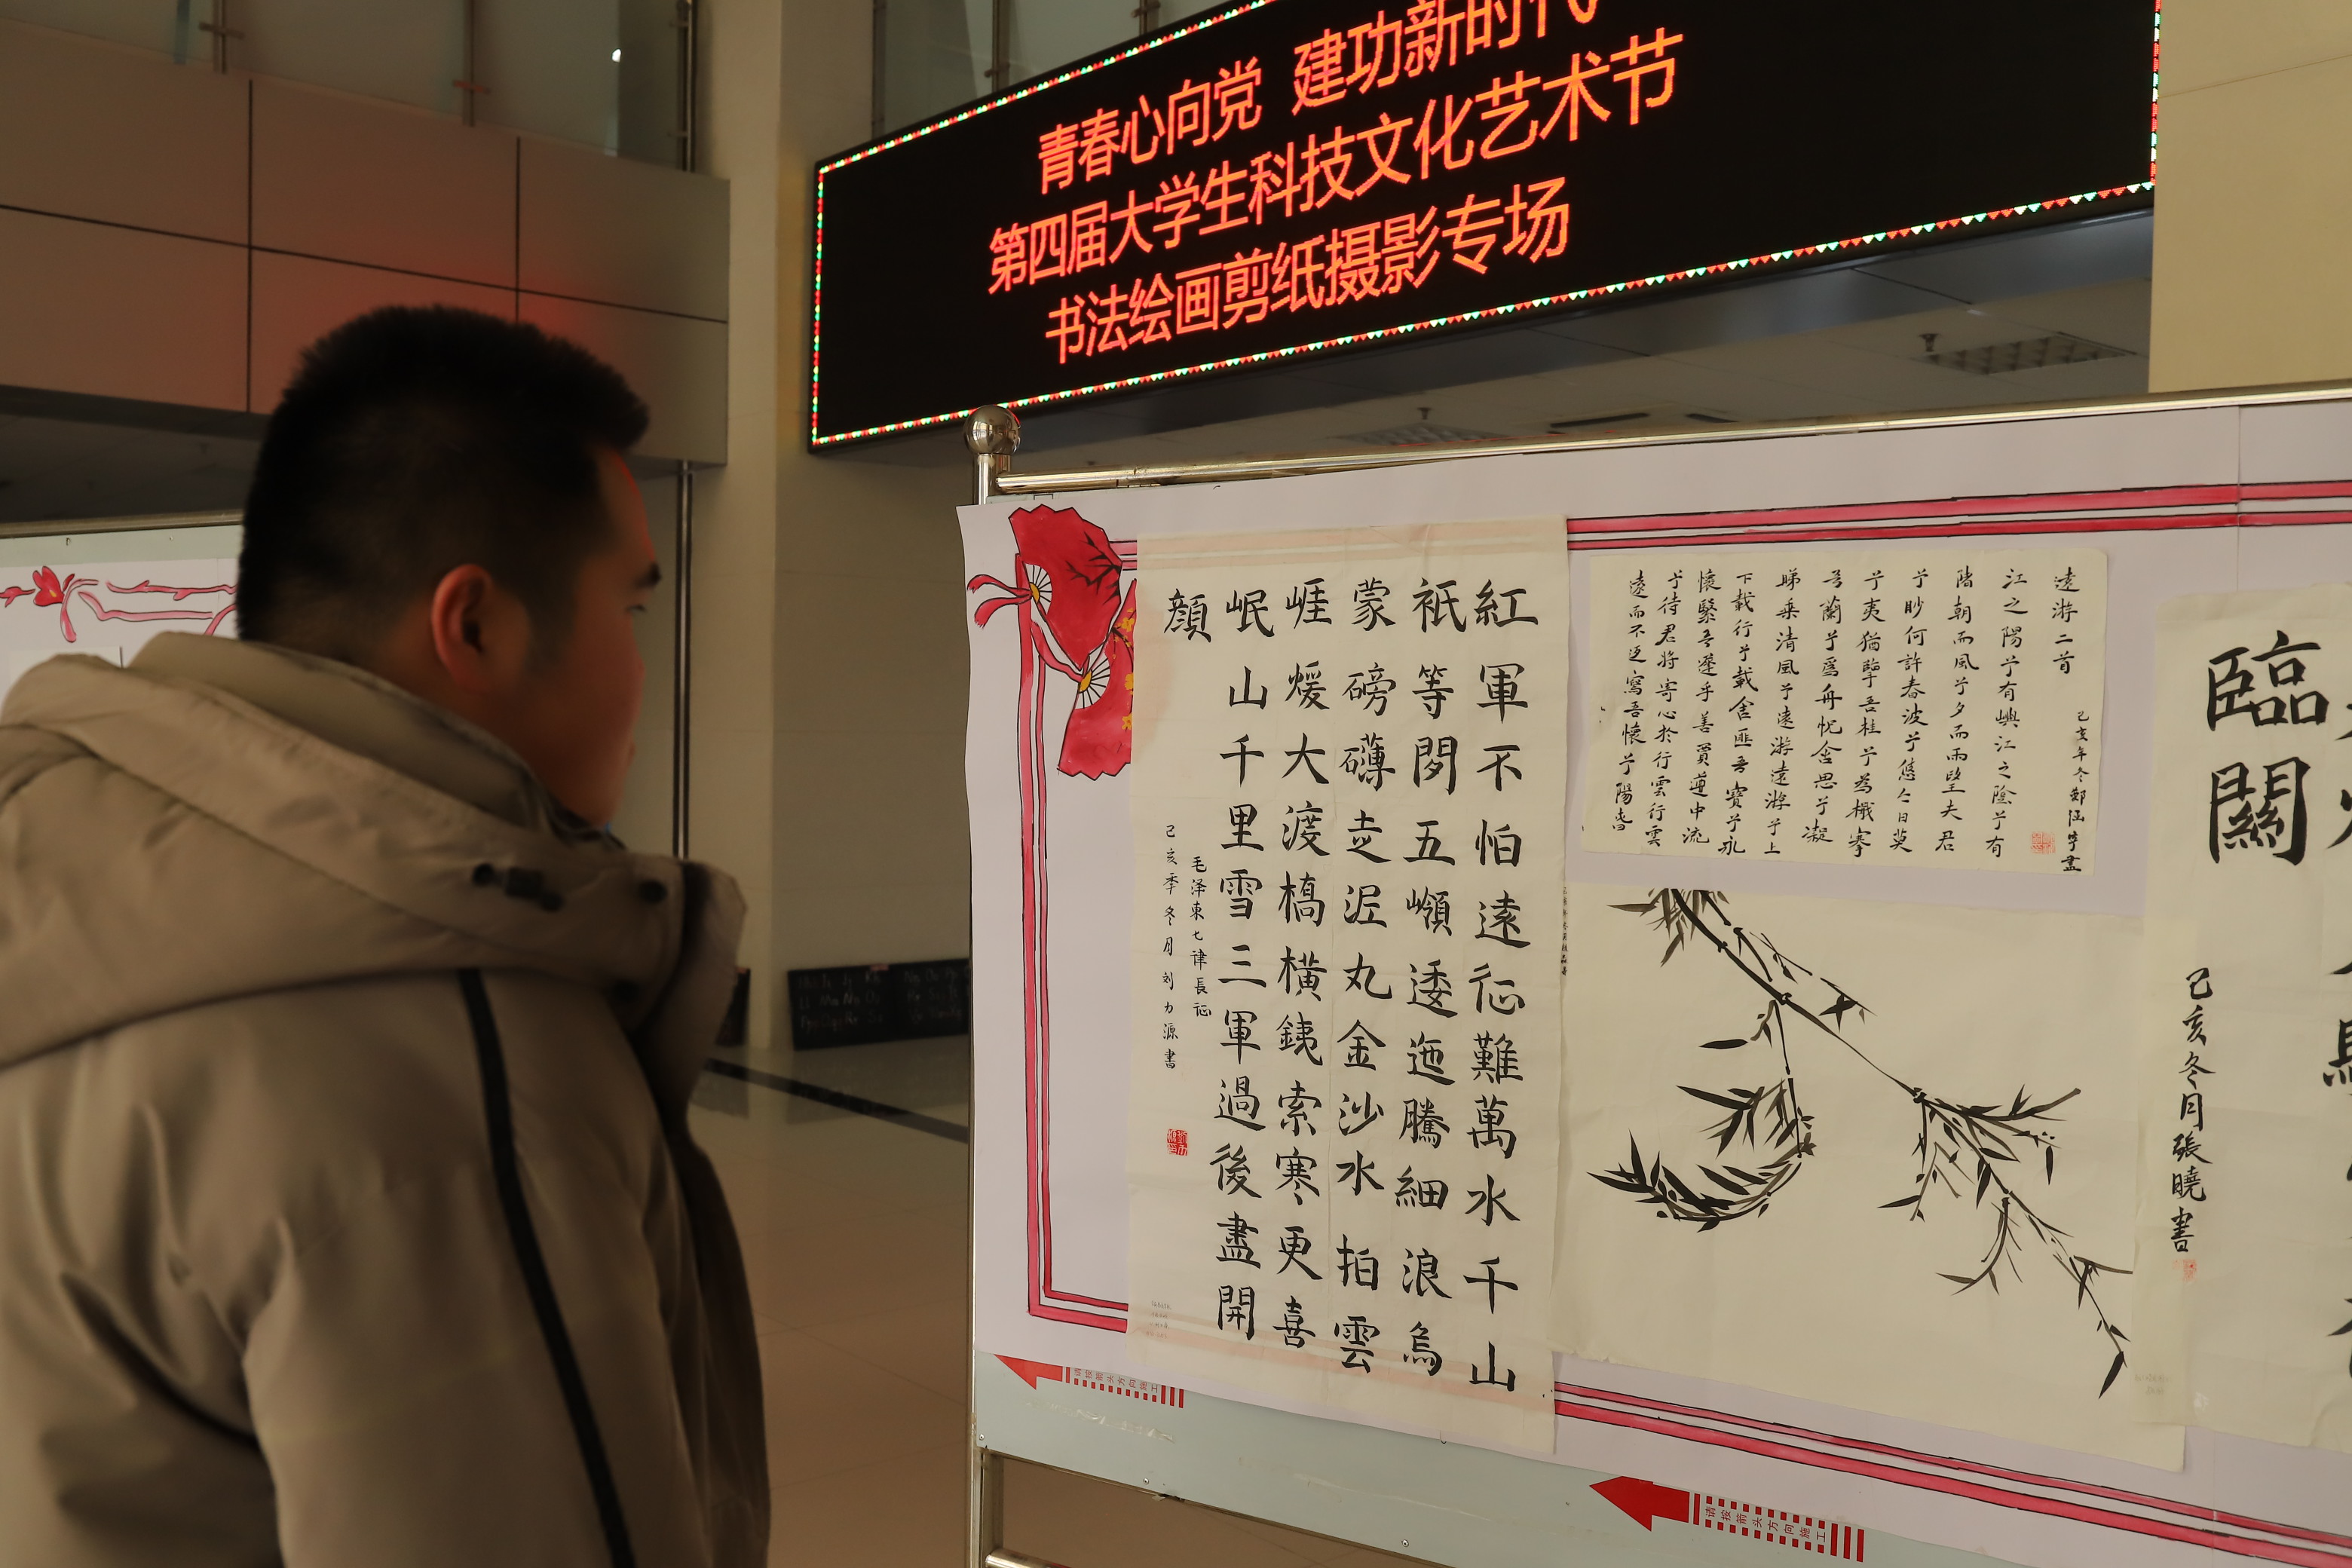 青春心向党 建功新时代
第四届大学生科技文化艺术节
书法绘画剪纸摄影专场
紅軍不怕遠征難萬水千山
衹等閖五嶺逶迤騰細浪烏
蒙磅礴走泥丸金沙水拍雲
崕煖大渡橋橫銕索寒更喜
岷山千里雪三軍過後盡開
顏
毛泽東七律長征
己亥季冬月刘力源書
遠游二首
己亥年冬
江之陽兮有嶼江之陰兮有
陼朝而風兮夕而雨望夫君
兮眇何許春波兮悠今日莫
兮夷猶臨吾桂兮為檝搴
吾蘭兮為舟怳含思兮凝
睇乗清風兮遠游遠游兮上
下載行兮載舍匪吾寶兮永
懷緊吾遲乎善買遵中流
兮待君將寄心於行雲行雲
遠而不逗寫吾懷兮陽春
臨關
己亥冬月張曉書
请按箭头方向施工
请按箭头方向施工